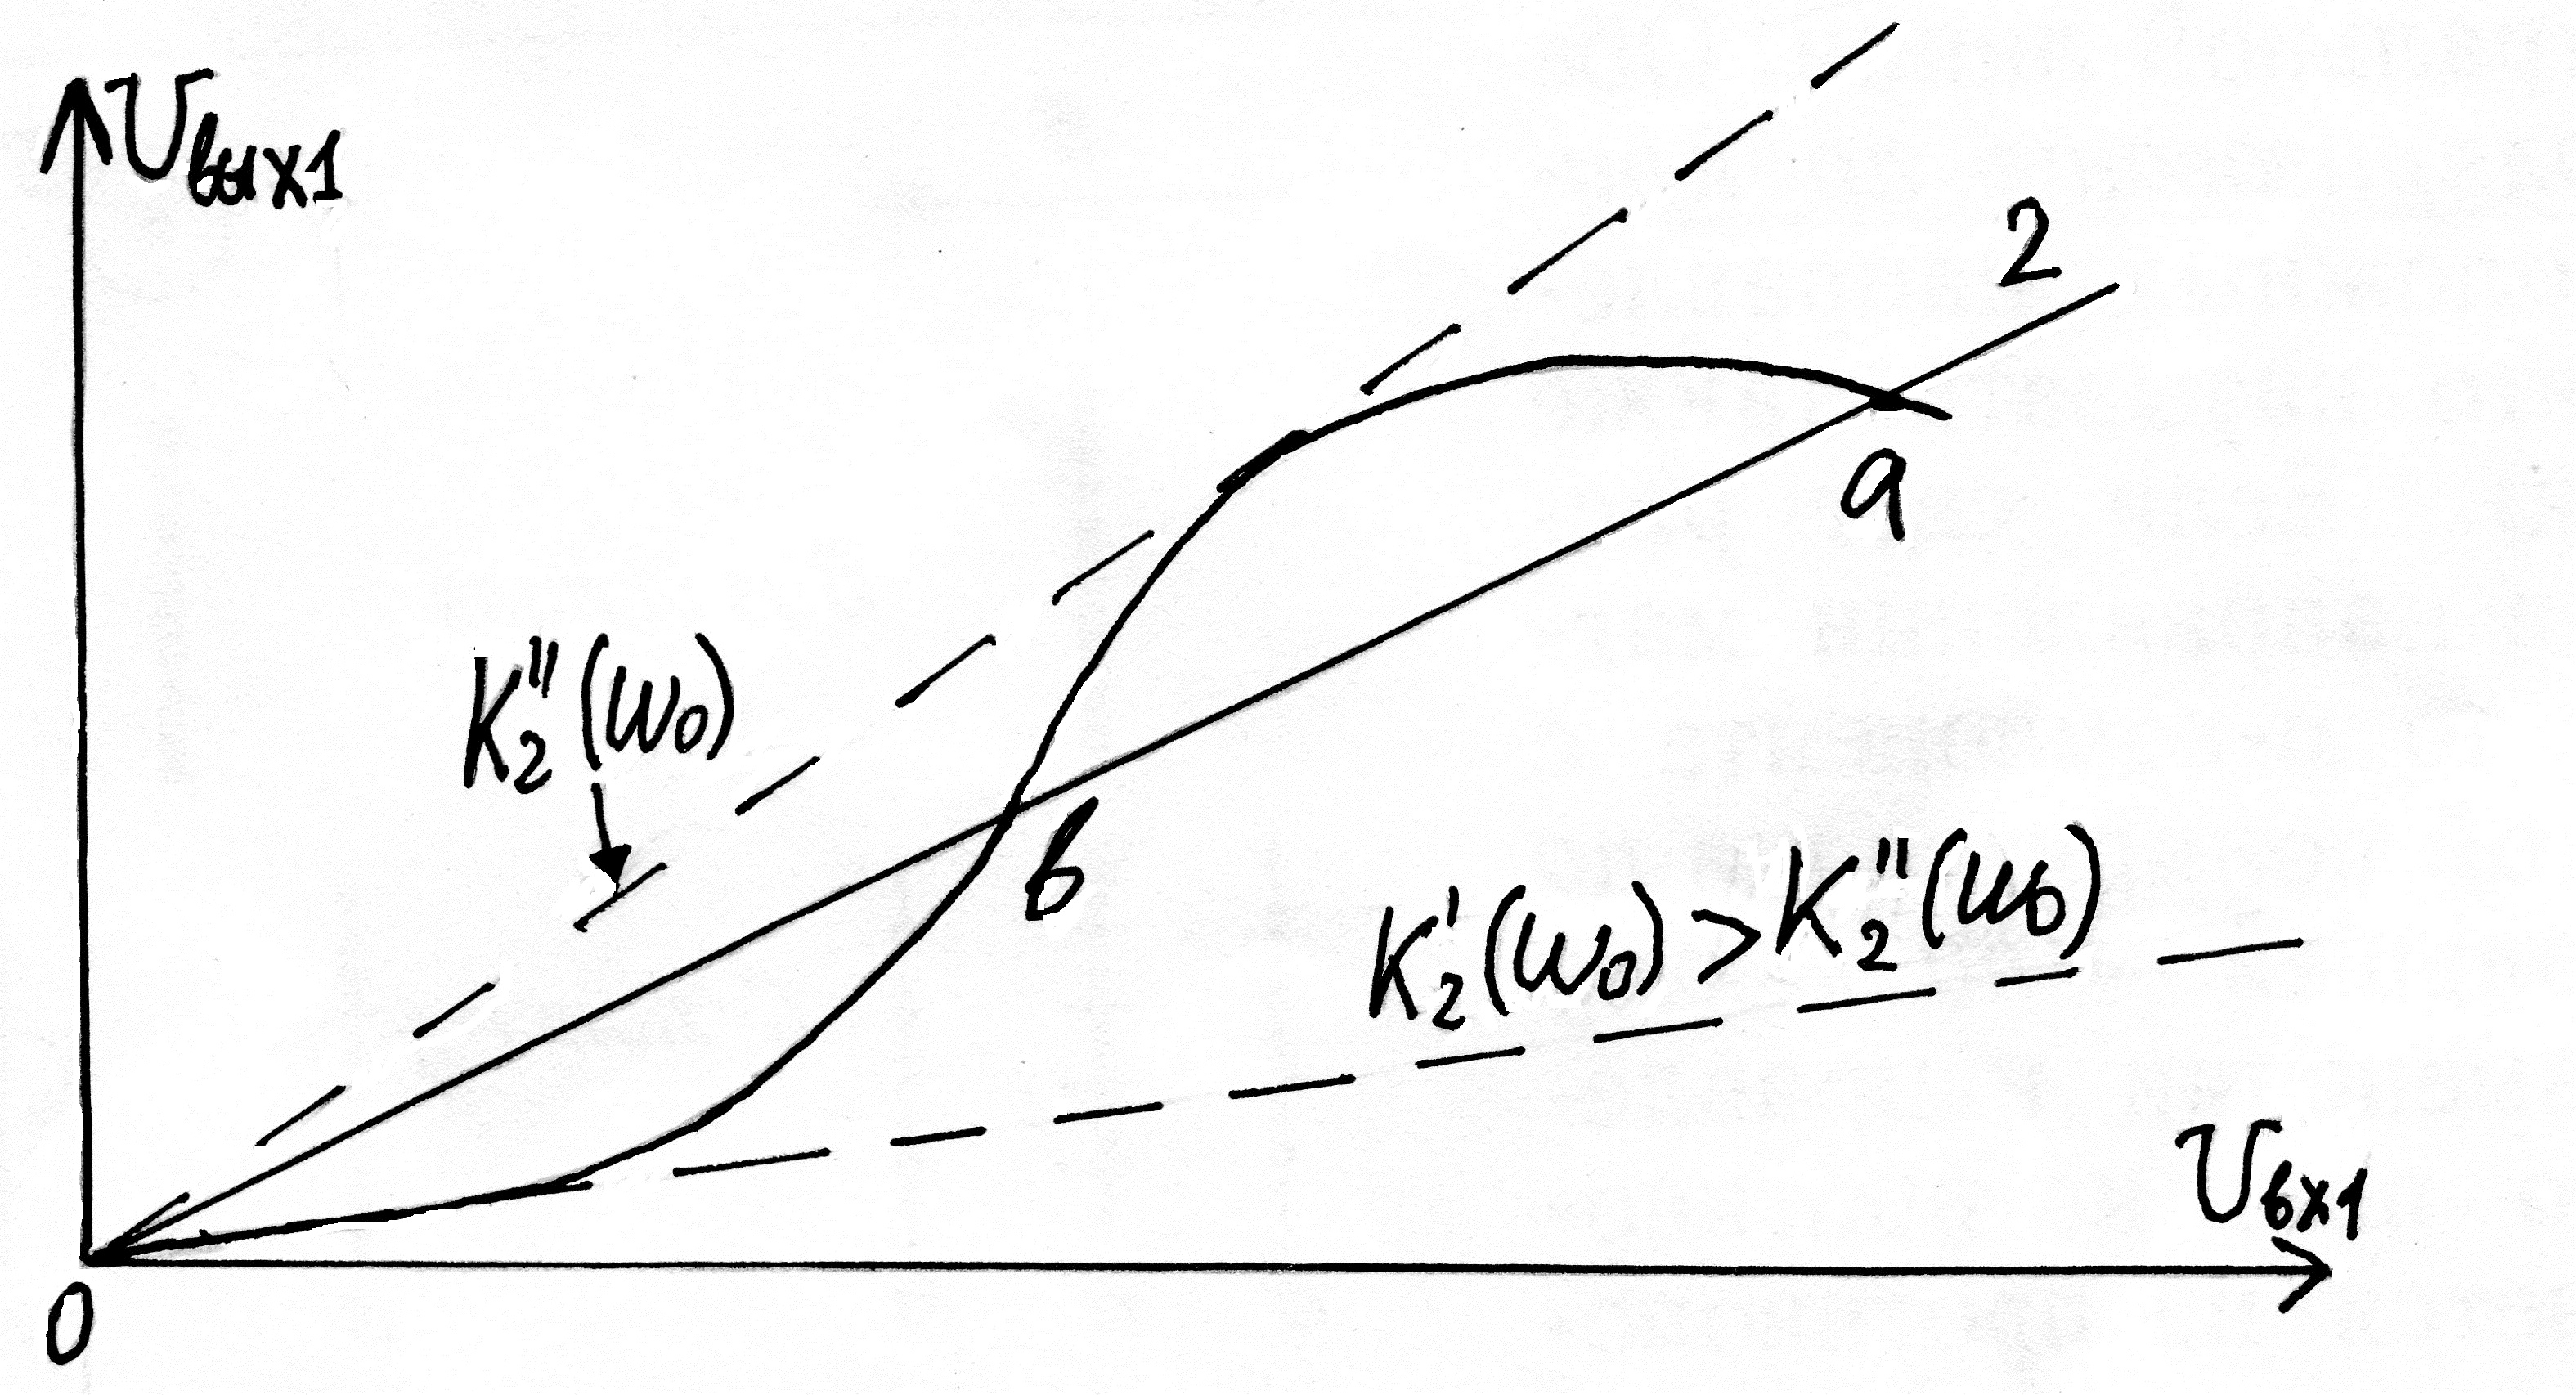 Uвых1
2
a
K₂''(ω₀)
в
K₂'(ω₀) > K₂''(ω₀)
Uвх1
0